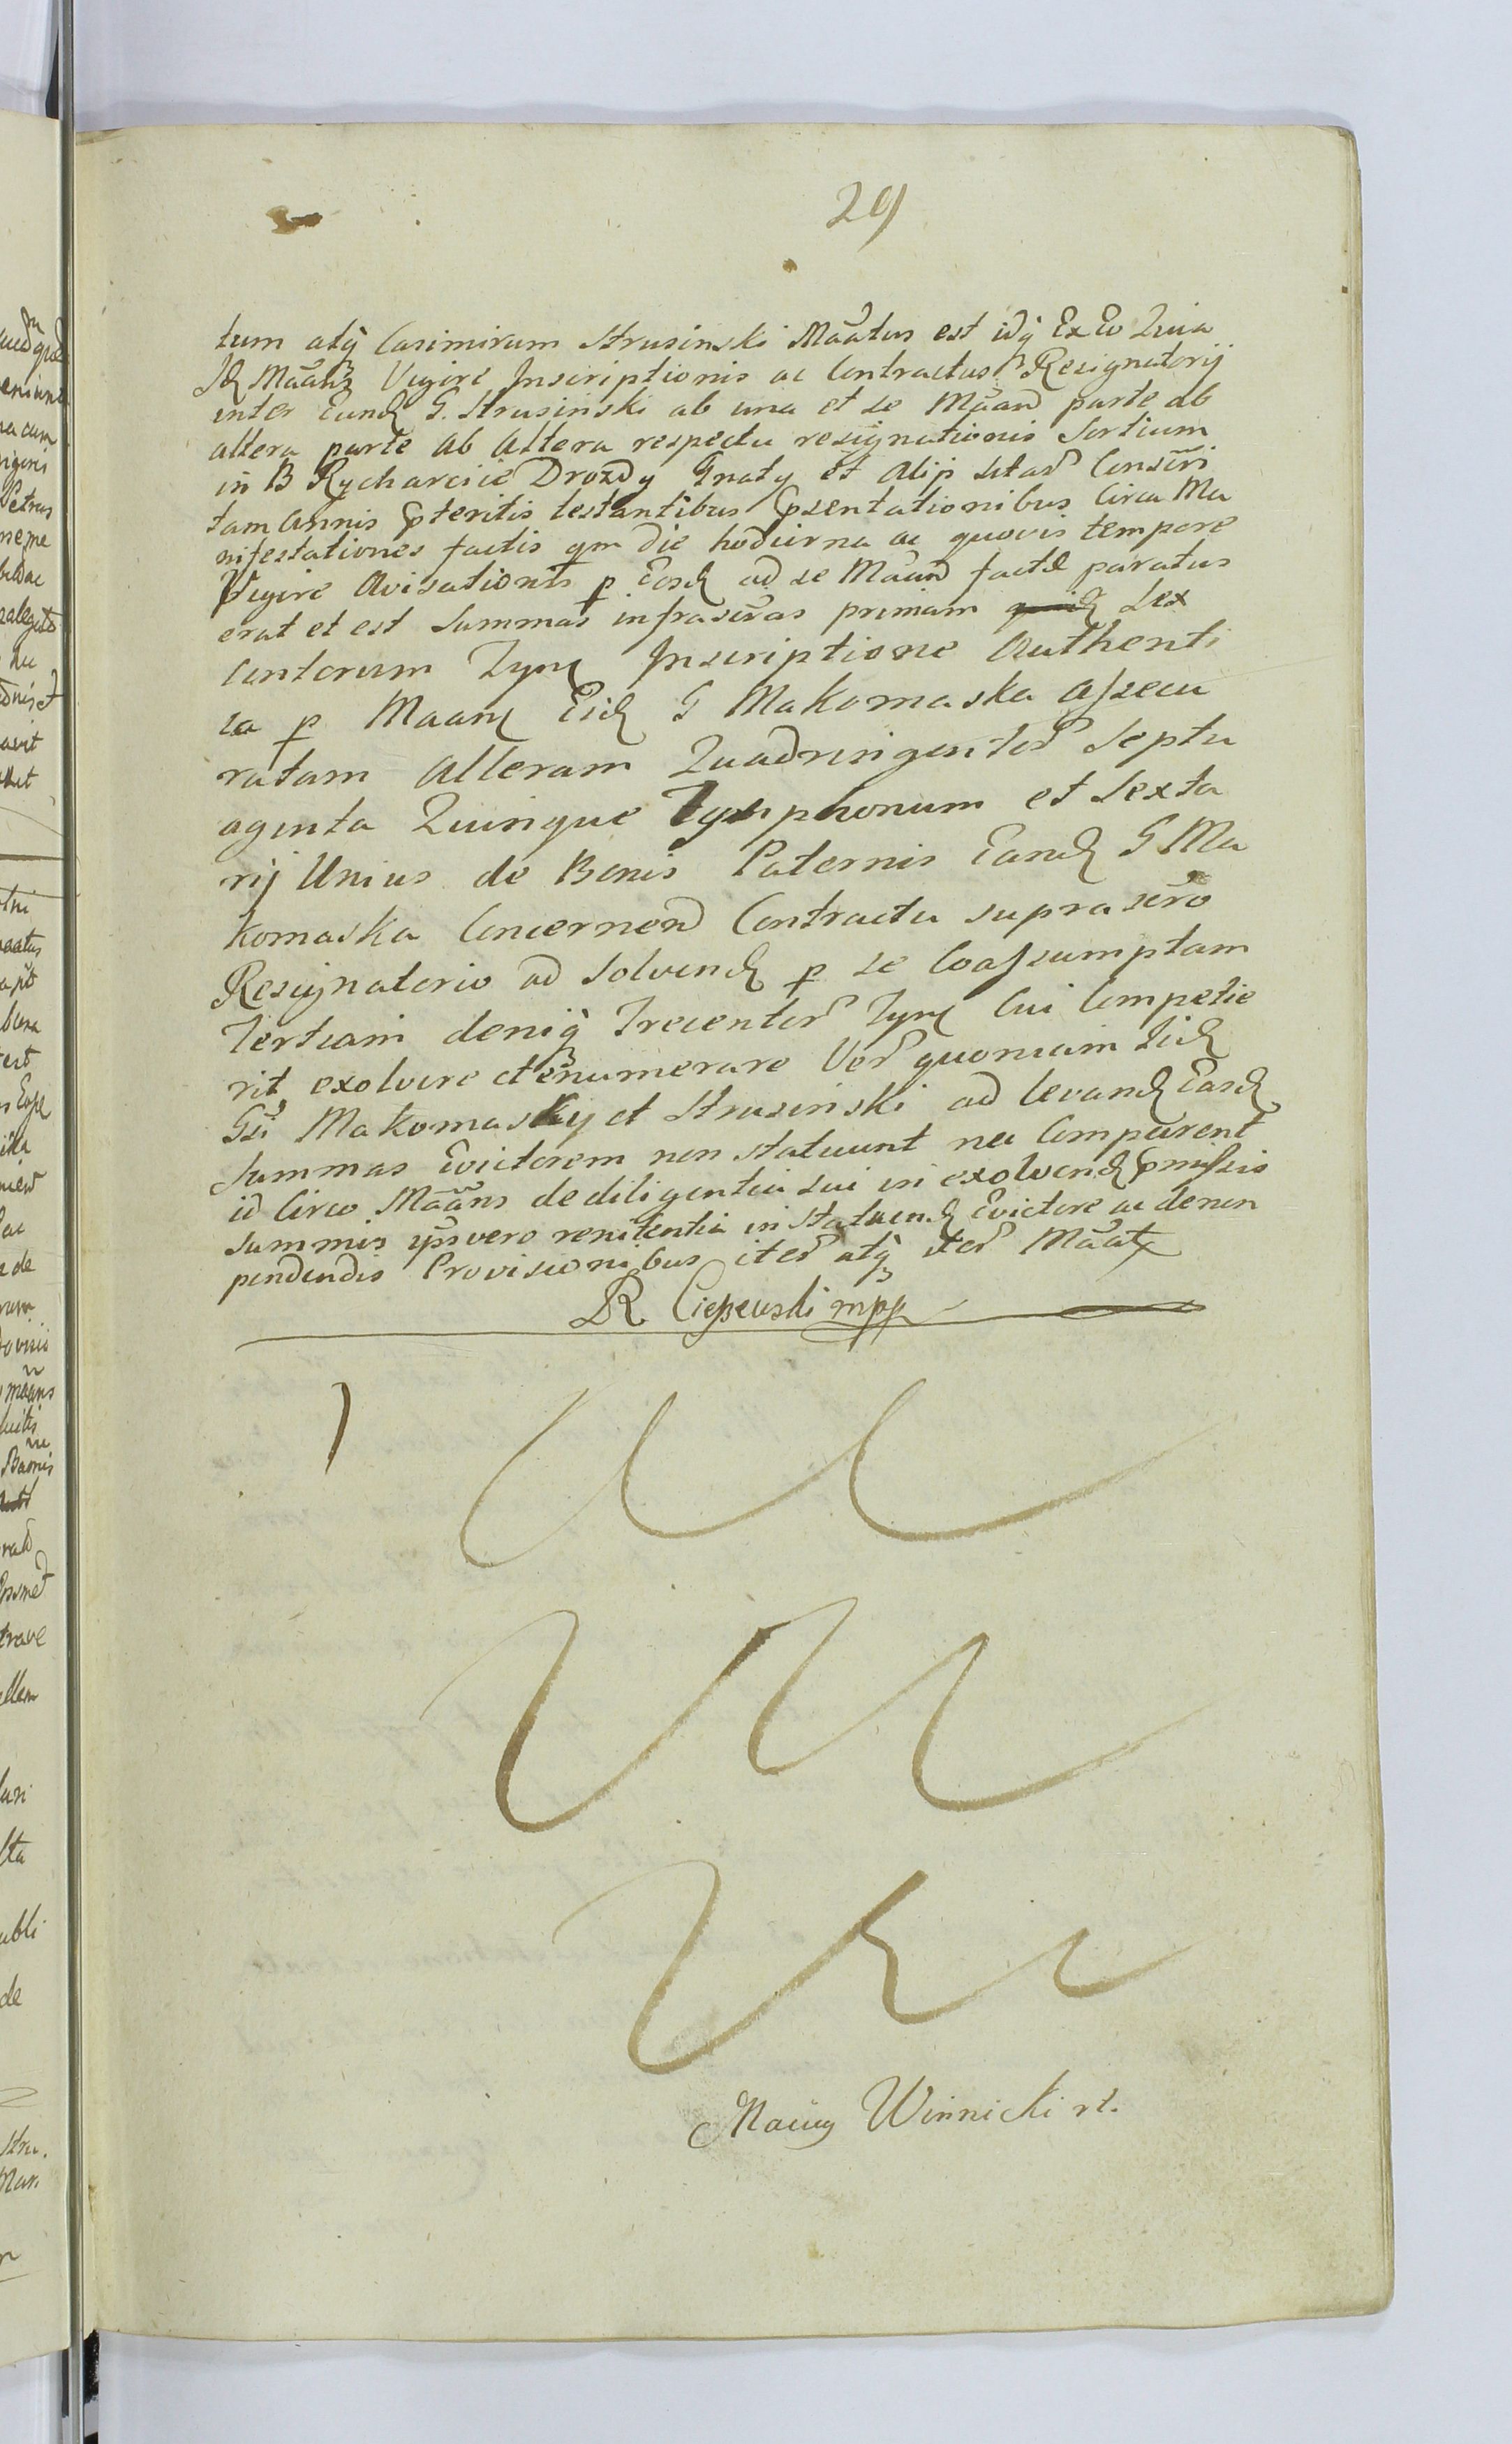 29
tum atq Casimirum Strusinski Maatus est idq Ex Eo Quia
Id Maans Vigire Inscriptionis ac Contractus Resignatorij
inter Eund G. Strusinski ab una et se Maand parte ab
altera parte ab Altera respectu resignationis Sortium
in B Rycharcice Drozdy Gnaty et Alijs sitar Conscri
tam Annis pteritis testantibus psentationibus Circa Ma
nifestationes factis qm die hodierna ac quovis tempore
Vigire Avisationis p Eosd ad se Maand facta paratus
erat et est Summas infrascras primam Sex
Centorum Tym Inscriptione Authenti
ca p Maan Eid G Makomaska assecu
ratam Alteram Quadringentor Septu
aginta Quinque Tymphonum et Sexta
rij Unius de Bonis Paternis Eand G Ma
komaska Concernen Contractu suprascro
Resignatorio ad Solvend p se Coassumptam
Tertiam deniq Trecentor Tym Cui Competie
rit, exolvere et enumerare Ver quoniam Iid
Gsi Makomasky et Strusinski ad levand Easd
Summas Evictorem non statuunt nec Comparent
id Circo Maans de diligentia sui in exolvend pmissis
Summis ipsis vero renitentia in statuend Evictore ac de non
pendendis Provisionibus iter atq iter Maatr
R Ciepewski mpp
Winnicki